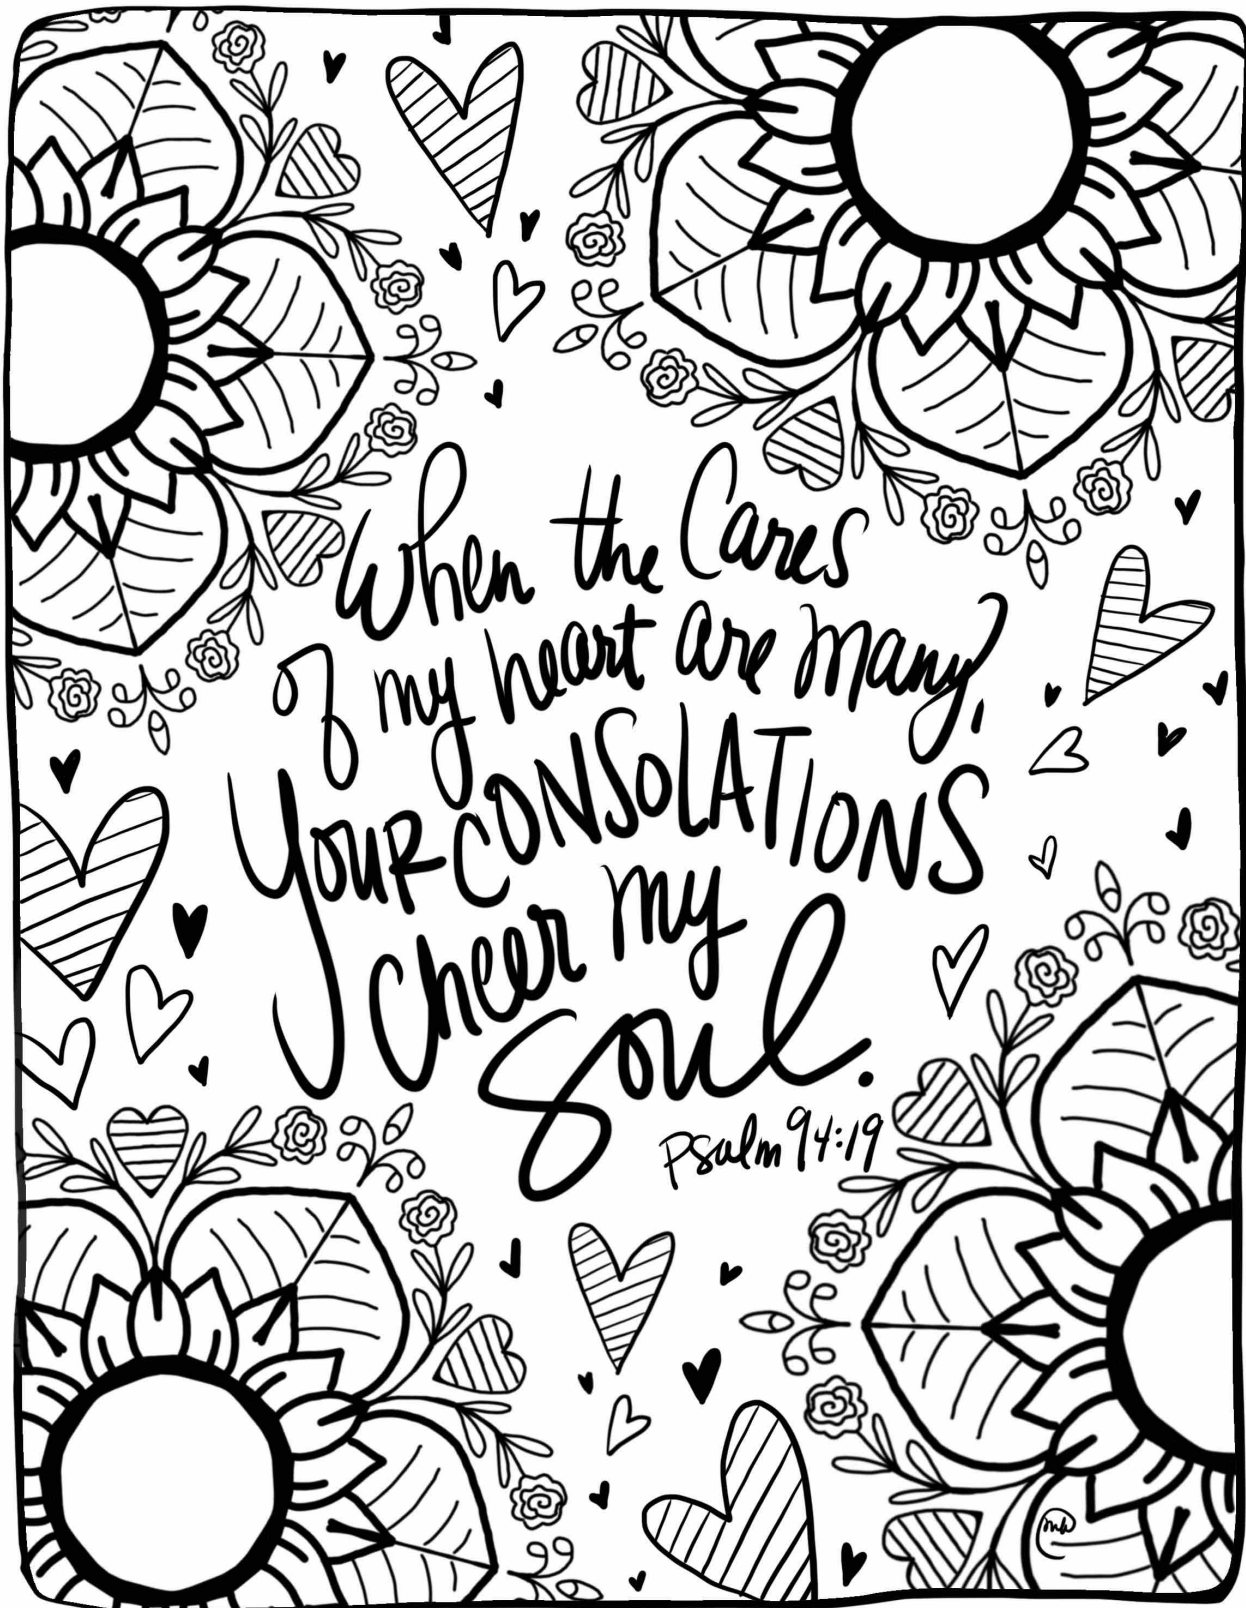 When the Cares
of my heart are many,
Your CONSOLATIONS
cheer my
soul.
Psalm 94:19
mw